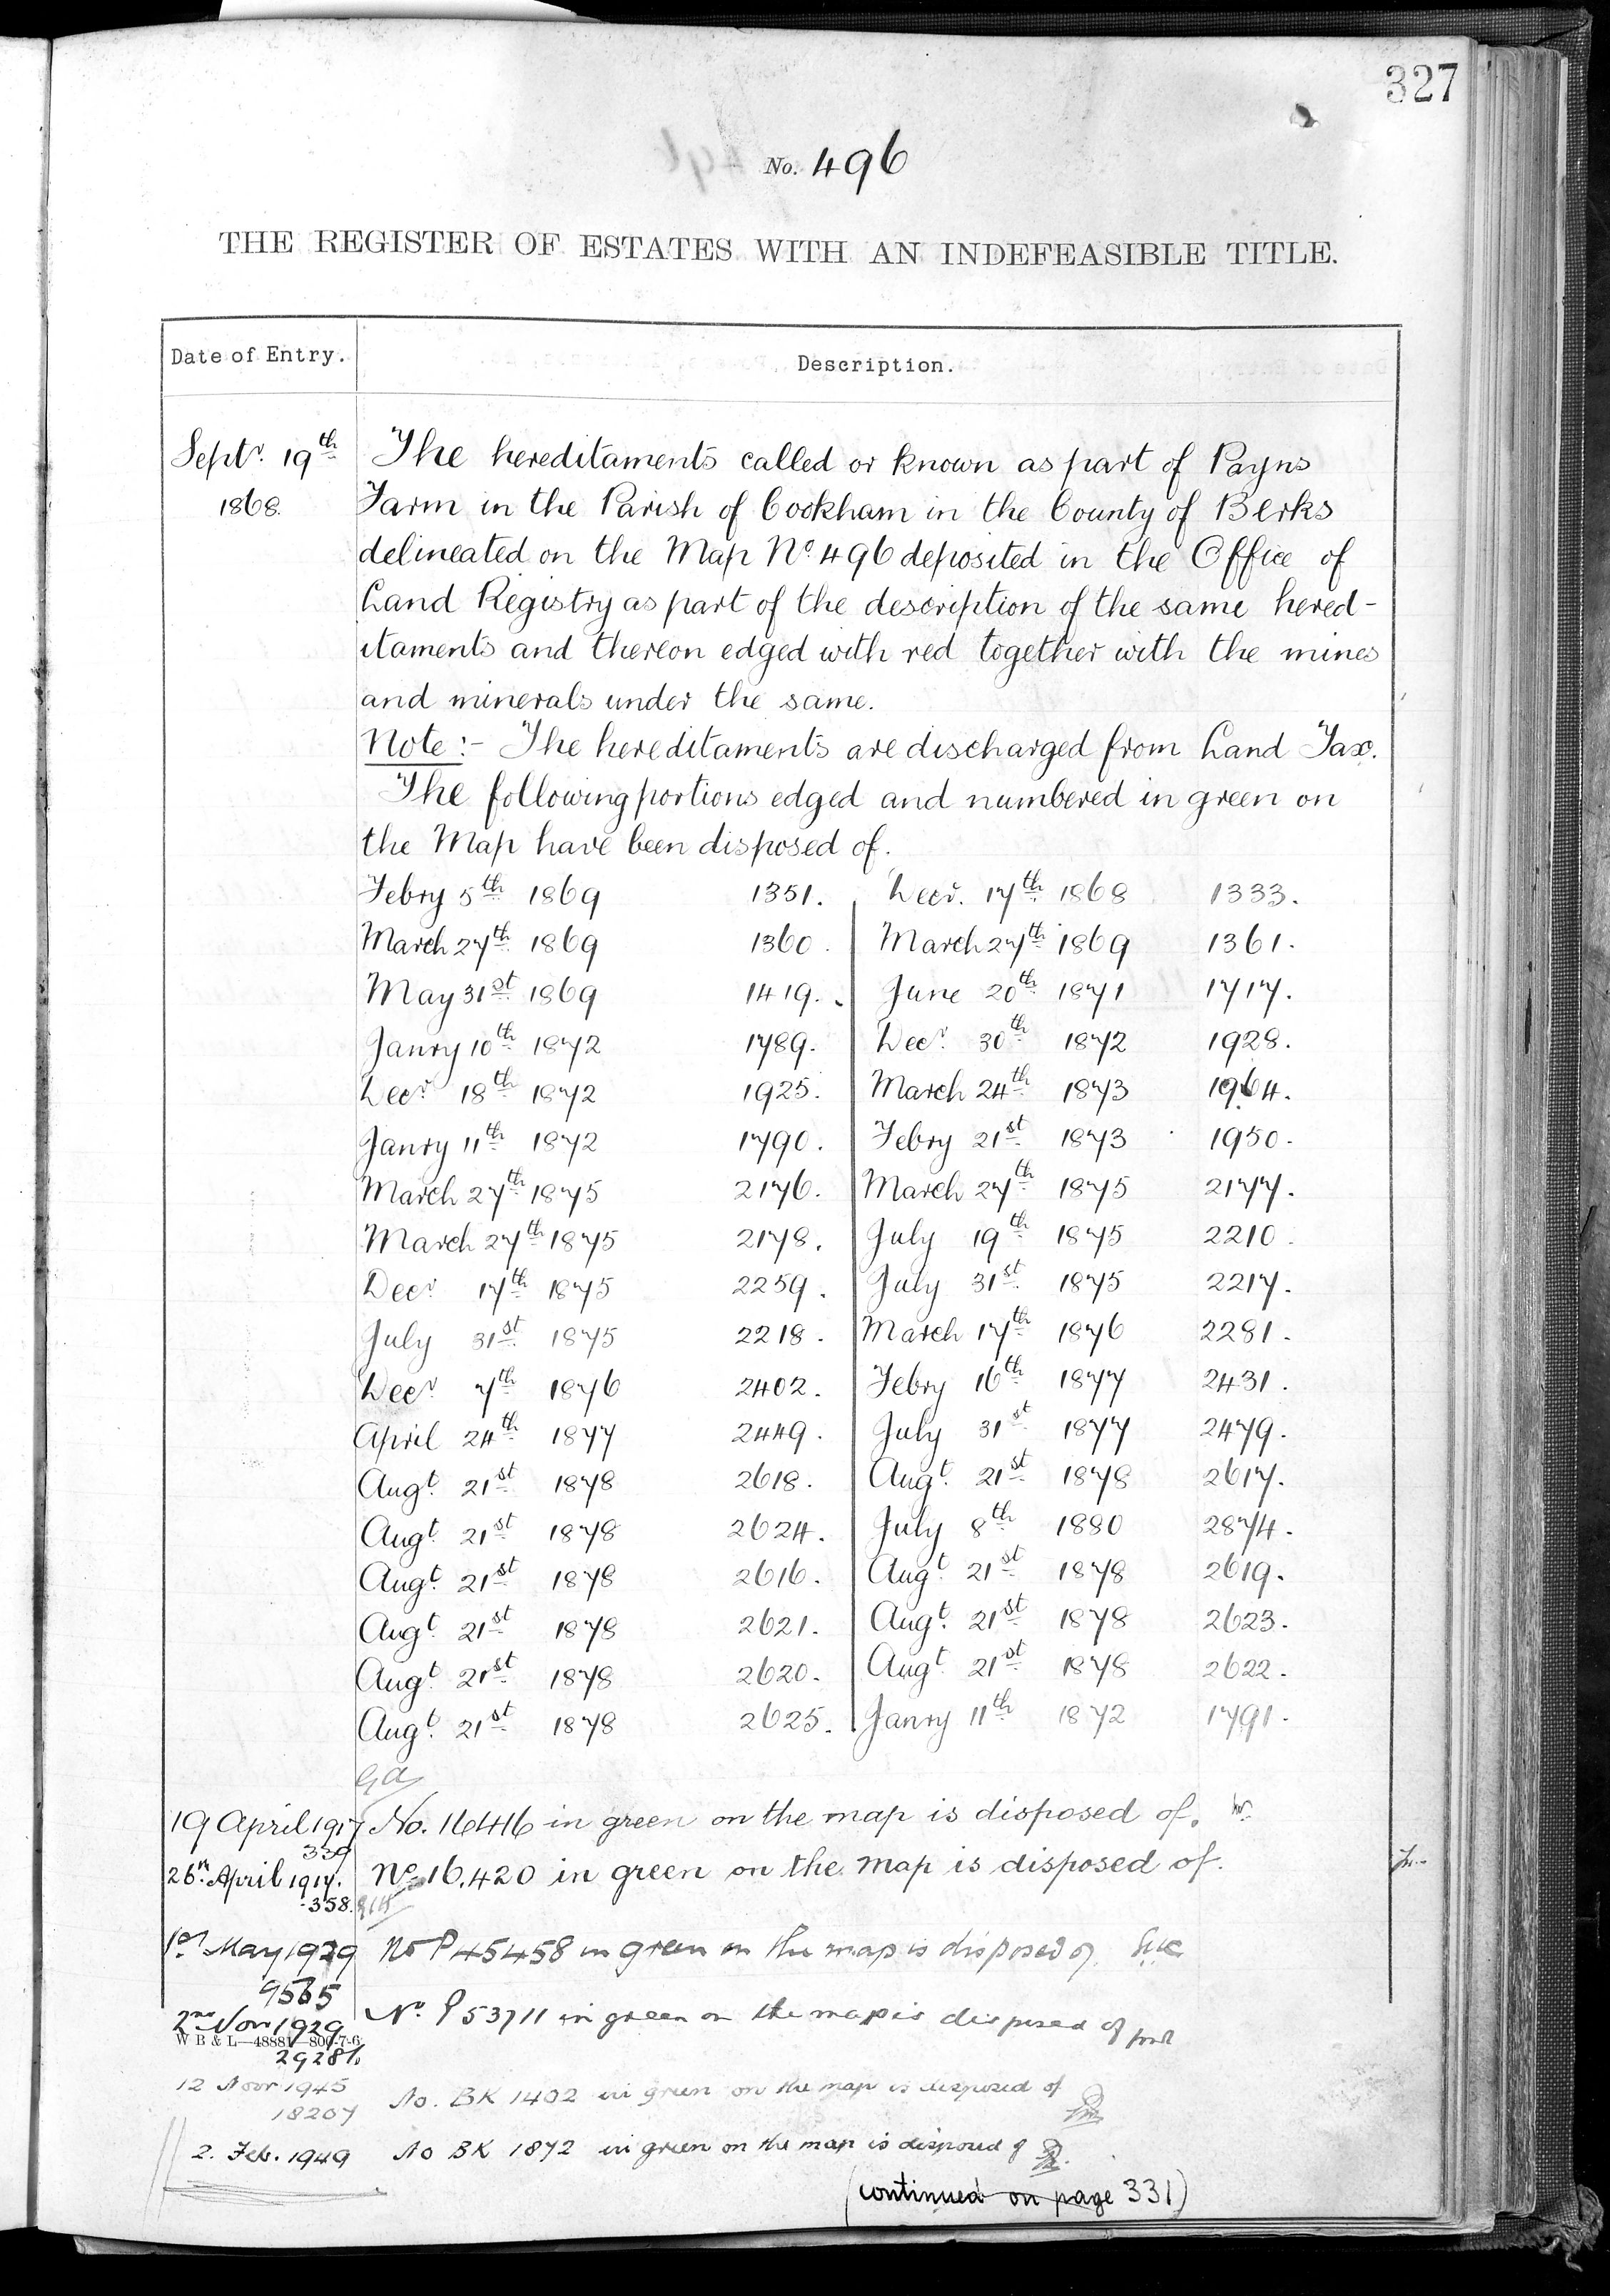 327
No. 496
THE REGISTER OF ESTATES WITH AN INDEFEASIBLE TITLE.
Date of Entry. Description.
Septr. 19th The hereditaments called or known as part of Payns
1868. Farm in the Parish of Cookham in the County of Berks
delineated on the Map No. 496 deposited in the Office of
Land Registry as part of the description of the same hered-
itaments and thereon edged with red together with the mines
and minerals under the same.
Note:- The hereditaments are discharged from Land Tax.
The following portions edged and numbered in green on
the Map have been disposed of.
Febry 5th 1869 1351. Decr. 17th 1868 1333.
March 27th 1869 1360. March 27th 1869 1361.
May 31st 1869 1419. June 20th 1871 1717.
Janry 10th 1872 1789. Decr. 30th 1872 1928.
Decr. 18th 1872 1925. March 24th 1873 1964.
Janry 11th 1872 1790. Febry 21st 1873 1950.
March 27th 1875 2176. March 27th 1875 2177.
March 27th 1875 2178. July 19th 1875 2210.
Decr. 17th 1875 2259. July 31st 1875 2217.
July 31st 1875 2218. March 17th 1876 2281.
Decr. 7th 1876 2402. Febry 16th 1877 2431.
April 24th 1877 2449. July 31st 1877 2479.
Augt. 21st 1878 2618. Augt. 21st 1878 2617.
Augt. 21st 1878 2624. July 8th 1880 2874.
Augt. 21st 1878 2616. Augt. 21st 1878 2619.
Augt. 21st 1878 2621. Augt. 21st 1878 2623.
Augt. 21st 1878 2620. Augt. 21st 1878 2622.
Augt. 21st 1878 2625. Janry 11th 1872 1791.
19 April 1917 No. 16416 in green on the map is disposed of.
339
26th April 1917. No. 16,420 in green on the map is disposed of.
358.
1st May 1929 No P 45458 in green on the map is disposed of.
9565
2nd Nov 1929 No. P 53711 in green on the map is disposed of
W B & L—48881—800-7-6
29281.
12 Novr 1945 No. BK 1402 in green on the map is disposed of
18207
2. Feb. 1949 No BK 1872 in green on the map is disposed of
(continued on page 331)